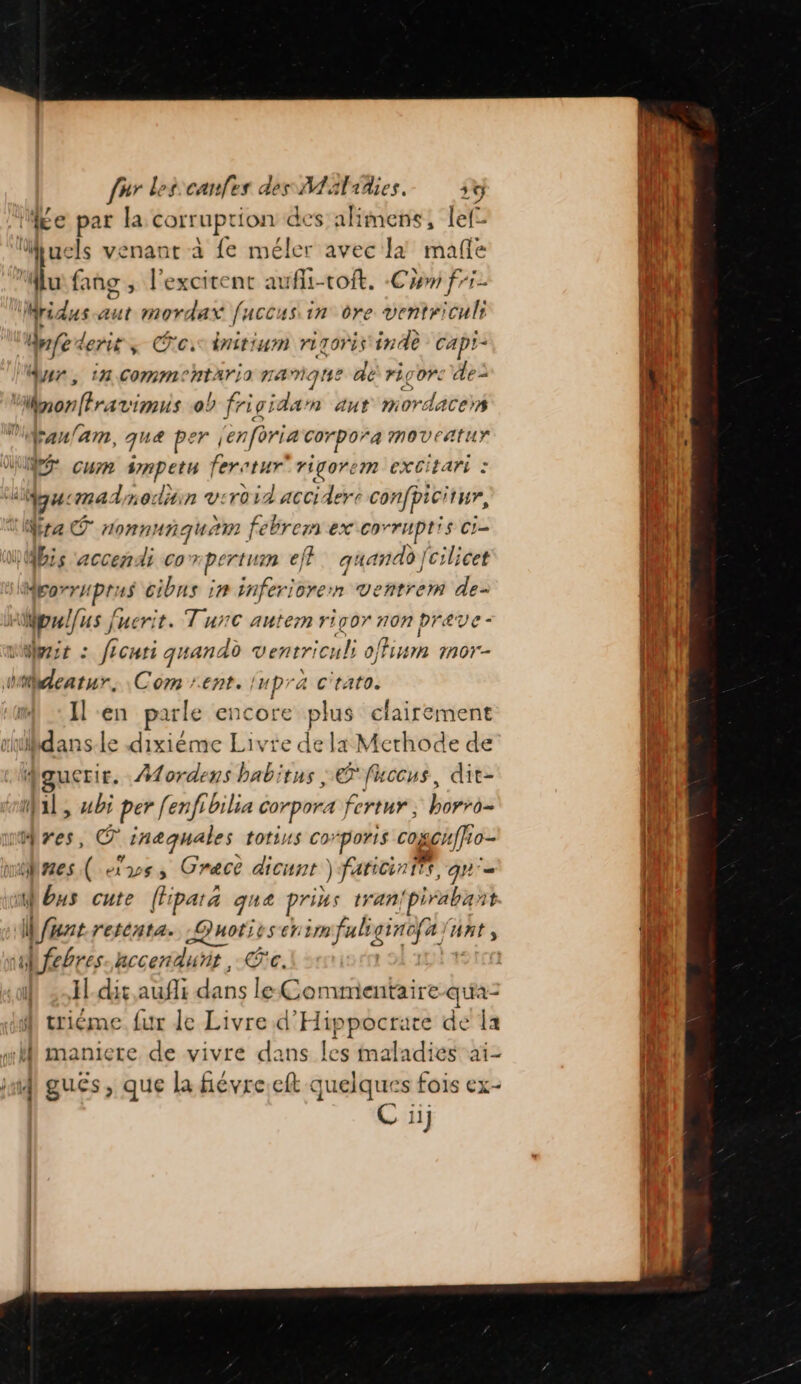 ſur les cauſes des Maladies.
ée par la corruption des alimens, leſ-
quels venant à ſe méler avec la maſſe
du ſang, l'excitent auſſi-toſt. Cùm fri-
gidus aut mordax ſuccus in ore ventriculi
inſederit, &c. initium rigoris indè capi-
tur, in commentario namque de rigore de-
monſtravimus ob frigidam aut mordacem
cauſam, quæ per ſenſoria corpora moveatur
& cum impetu feratur rigorem excitari :
quemadmodum verò id accidere conſpicitur,
ita & nonnunquàm febrem ex corruptis ci-
bis accendi compertum eſt quandò ſcilicet
corruptus cibus in inferiorem ventrem de-
pulſus fuerit. Tunc autem rigor non præve-
nit : ſicuti quandò ventriculi oſtium mor-
deatur. Com. ſent. ſuprà citato.
Il en parle encore plus clairement
dans le dixiéme Livre de la Methode de
guerir. Mordens habitus, & ſuccus, dit-
il, ubi per ſenſibilia corpora fertur, horro-
res, & inæquales totius corporis concuſſio-
nes ( Græcè dicunt ) qui-
bus cute ſtipatâ quæ priùs tranſpirabant
ſunt retenta. Quoties enim fuliginoſa ſunt,
febres accendunt, &c.
Il dit auſſi dans le Commentaire qua-
triéme ſur le Livre d'Hippocrate de la
maniere de vivre dans les maladies ai-
guës, que la fiévre eſt quelques fois ex-
C iij